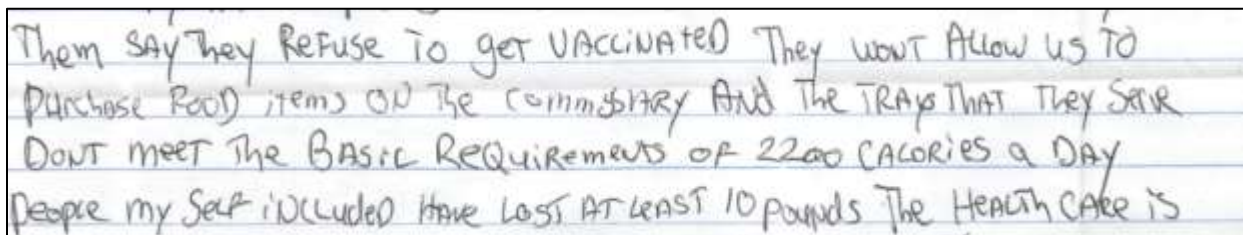 Them SAy They REFUSE TO get VACCiNATED They WONT Allow US TO
Purchase FOOD items ON The commisARY AND The TRAys THAT They Serve
DONT meeT The BASiC ReQuiRemeNTS OF 2200 CALORies a DAY
People my Self iNCLudeD HAVe LOST AT LeAST 10 pounds The HeALTH CARe is